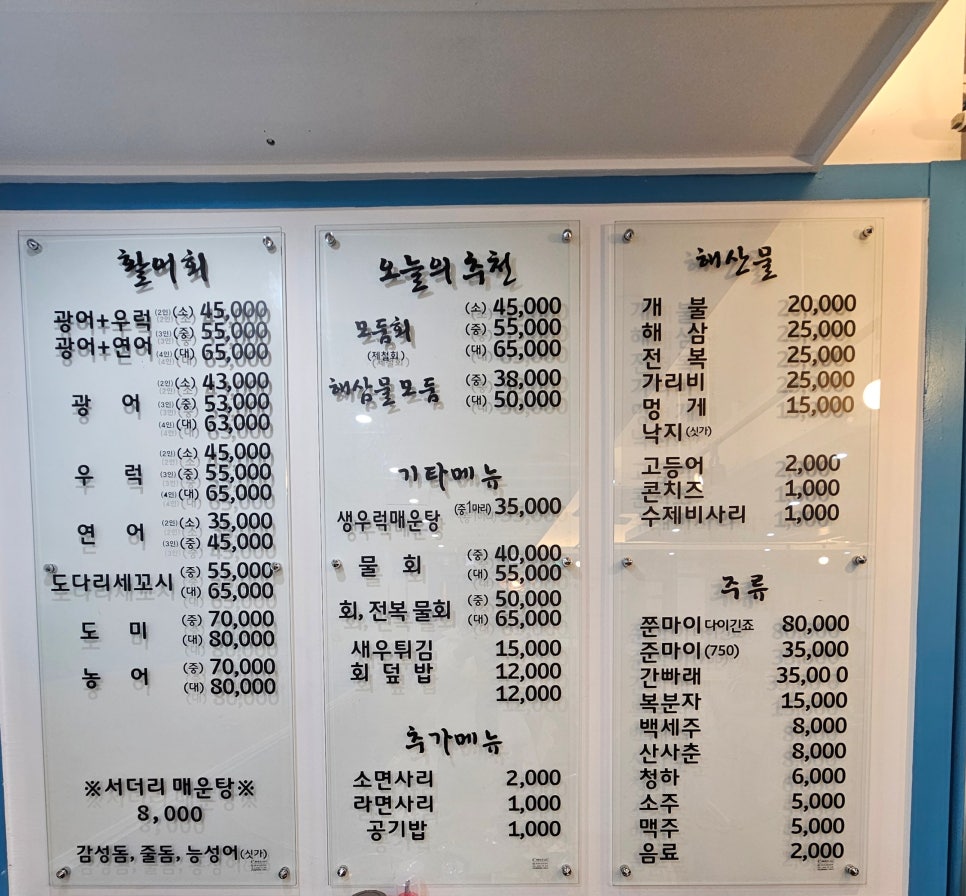 활어회
(2인) (소) 45,000
광어+우럭 (3인) (중) 55,000
광어+연어 (4인) (대) 65,000
(2인) (소) 43,000
광 어 (3인) (중) 53,000
(4인) (대) 63,000
(2인) (소) 45,000
우 럭 (3인) (중) 55,000
(4인) (대) 65,000
연 어 (2인) (소) 35,000
(3인) (중) 45,000
도다리세꼬시 (중) 55,000
(대) 65,000
도 미 (중) 70,000
(대) 80,000
농 어 (중) 70,000
(대) 80,000
※서더리 매운탕※
8,000
감성돔, 줄돔, 능성어(싯가)
오늘의 추천
(소) 45,000
모둠회 (중) 55,000
(제철회) (대) 65,000
해삼물모둠 (중) 38,000
(대) 50,000
기타메뉴
생우럭매운탕 (중1마리) 35,000
물 회 (중) 40,000
(대) 55,000
회, 전복물회 (중) 50,000
(대) 65,000
새우튀김 15,000
회 덮 밥 12,000
12,000
추가메뉴
소면사리 2,000
라면사리 1,000
공기밥 1,000
해산물
개 불 20,000
해 삼 25,000
전 복 25,000
가리비 25,000
멍 게 15,000
낙지(싯가)
고등어 2,000
콘치즈 1,000
수제비사리 1,000
주류
쭌마이 다이긴죠 80,000
준마이 (750) 35,000
간빠래 35,00 0
복분자 15,000
백세주 8,000
산사춘 8,000
청하 6,000
소주 5,000
맥주 5,000
음료 2,000